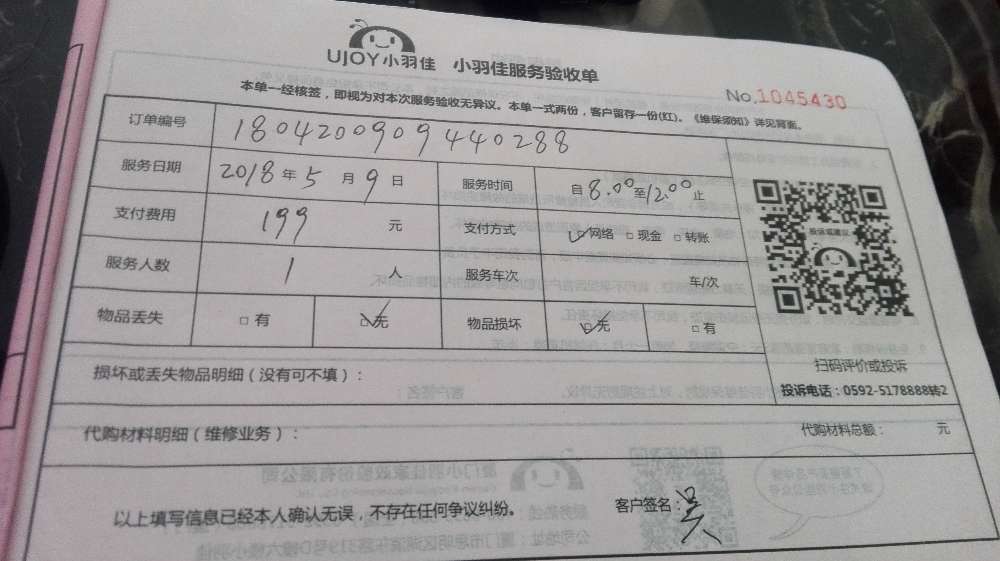 UJOY小羽佳 小羽佳服务验收单
No.1045430
本单一经核签，即视为对本次服务验收无异议。本单一式两份，客户留存一份(红)。《维保须知》详见背面。
订单编号 1804200909440288
服务日期 2018年5月9日 服务时间 自8.00至12.00止
支付费用 199元 支付方式 ☑网络 □现金 □转账
服务人数 1人 服务车次 车/次
物品丢失 □有 ☑无 物品损坏 ☑无 □有
投诉或建议
扫码评价或投诉
投诉电话：0592-5178888转2
损坏或丢失物品明细（没有可不填）：
代购材料明细（维修业务）： 代购材料总额： 元
以上填写信息已经本人确认无误，不存在任何争议纠纷。 客户签名：吴